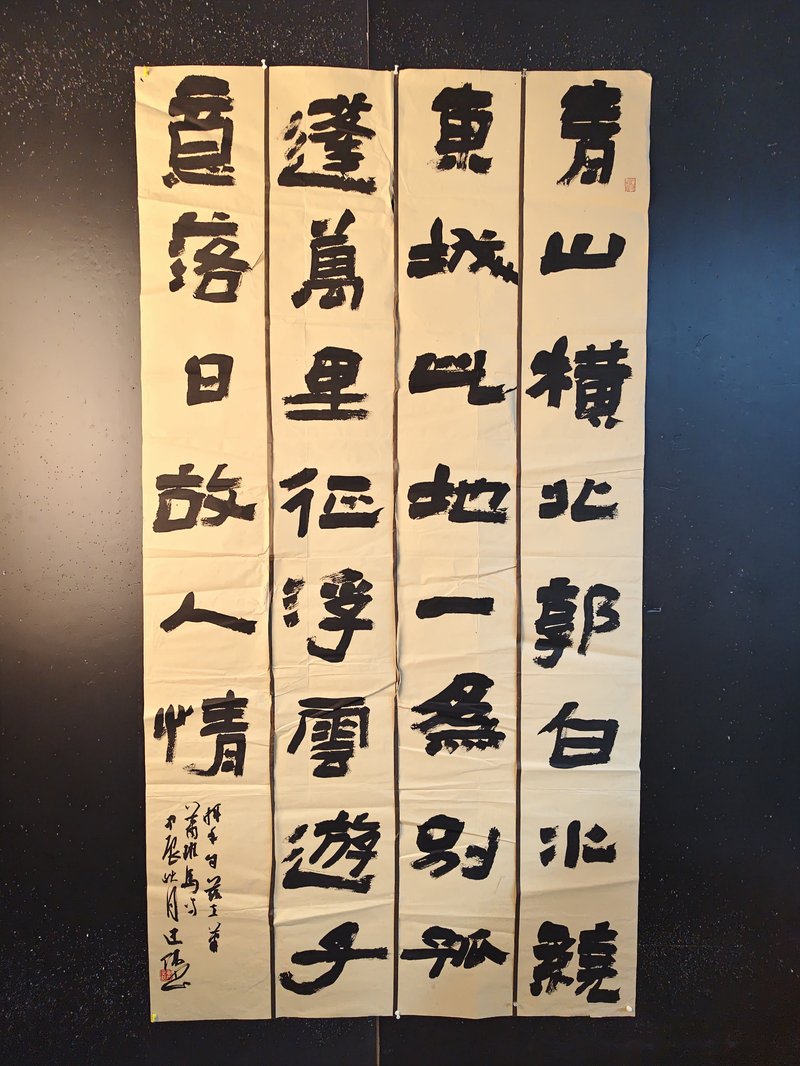 青山橫北郭白水繞
東城此地一為別孤
蓬萬里征浮雲遊子
意落日故人情
揮手自茲去蕭
蕭班馬鳴